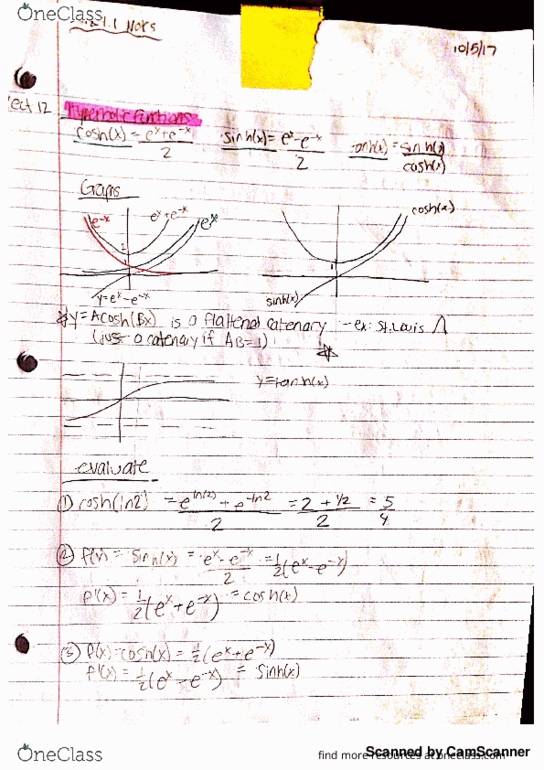 OneClass
1.1 Notes
10/5/17
Lect 12
Hyperbolic Functions
cosh(x) = e^x + e^-x / 2   sinh(x) = e^x - e^-x / 2   tanh(x) = sinh(x) / cosh(x)
Graphs
e^-x   e^x + e^-x   e^x   cosh(x)
y = e^x - e^-x   sinh(x)
y = Acosh(Bx) is a flattened catenary - ex: St. Louis
(just a catenary if AB=1)
y = tanh(x)
evaluate
① cosh(ln2) = e^ln(2) + e^-ln2 / 2 = 2 + 1/2 / 2 = 5/4
② f(x) = sinh(x) = e^x - e^-x / 2 = 1/2 (e^x - e^-x)
f'(x) = 1/2 (e^x + e^-x) = cosh(x)
③ f(x) = cosh(x) = 1/2 (e^x + e^-x)
f'(x) = 1/2 (e^x - e^-x) = sinh(x)
OneClass
find more resources at oneclass.com
Scanned by CamScanner